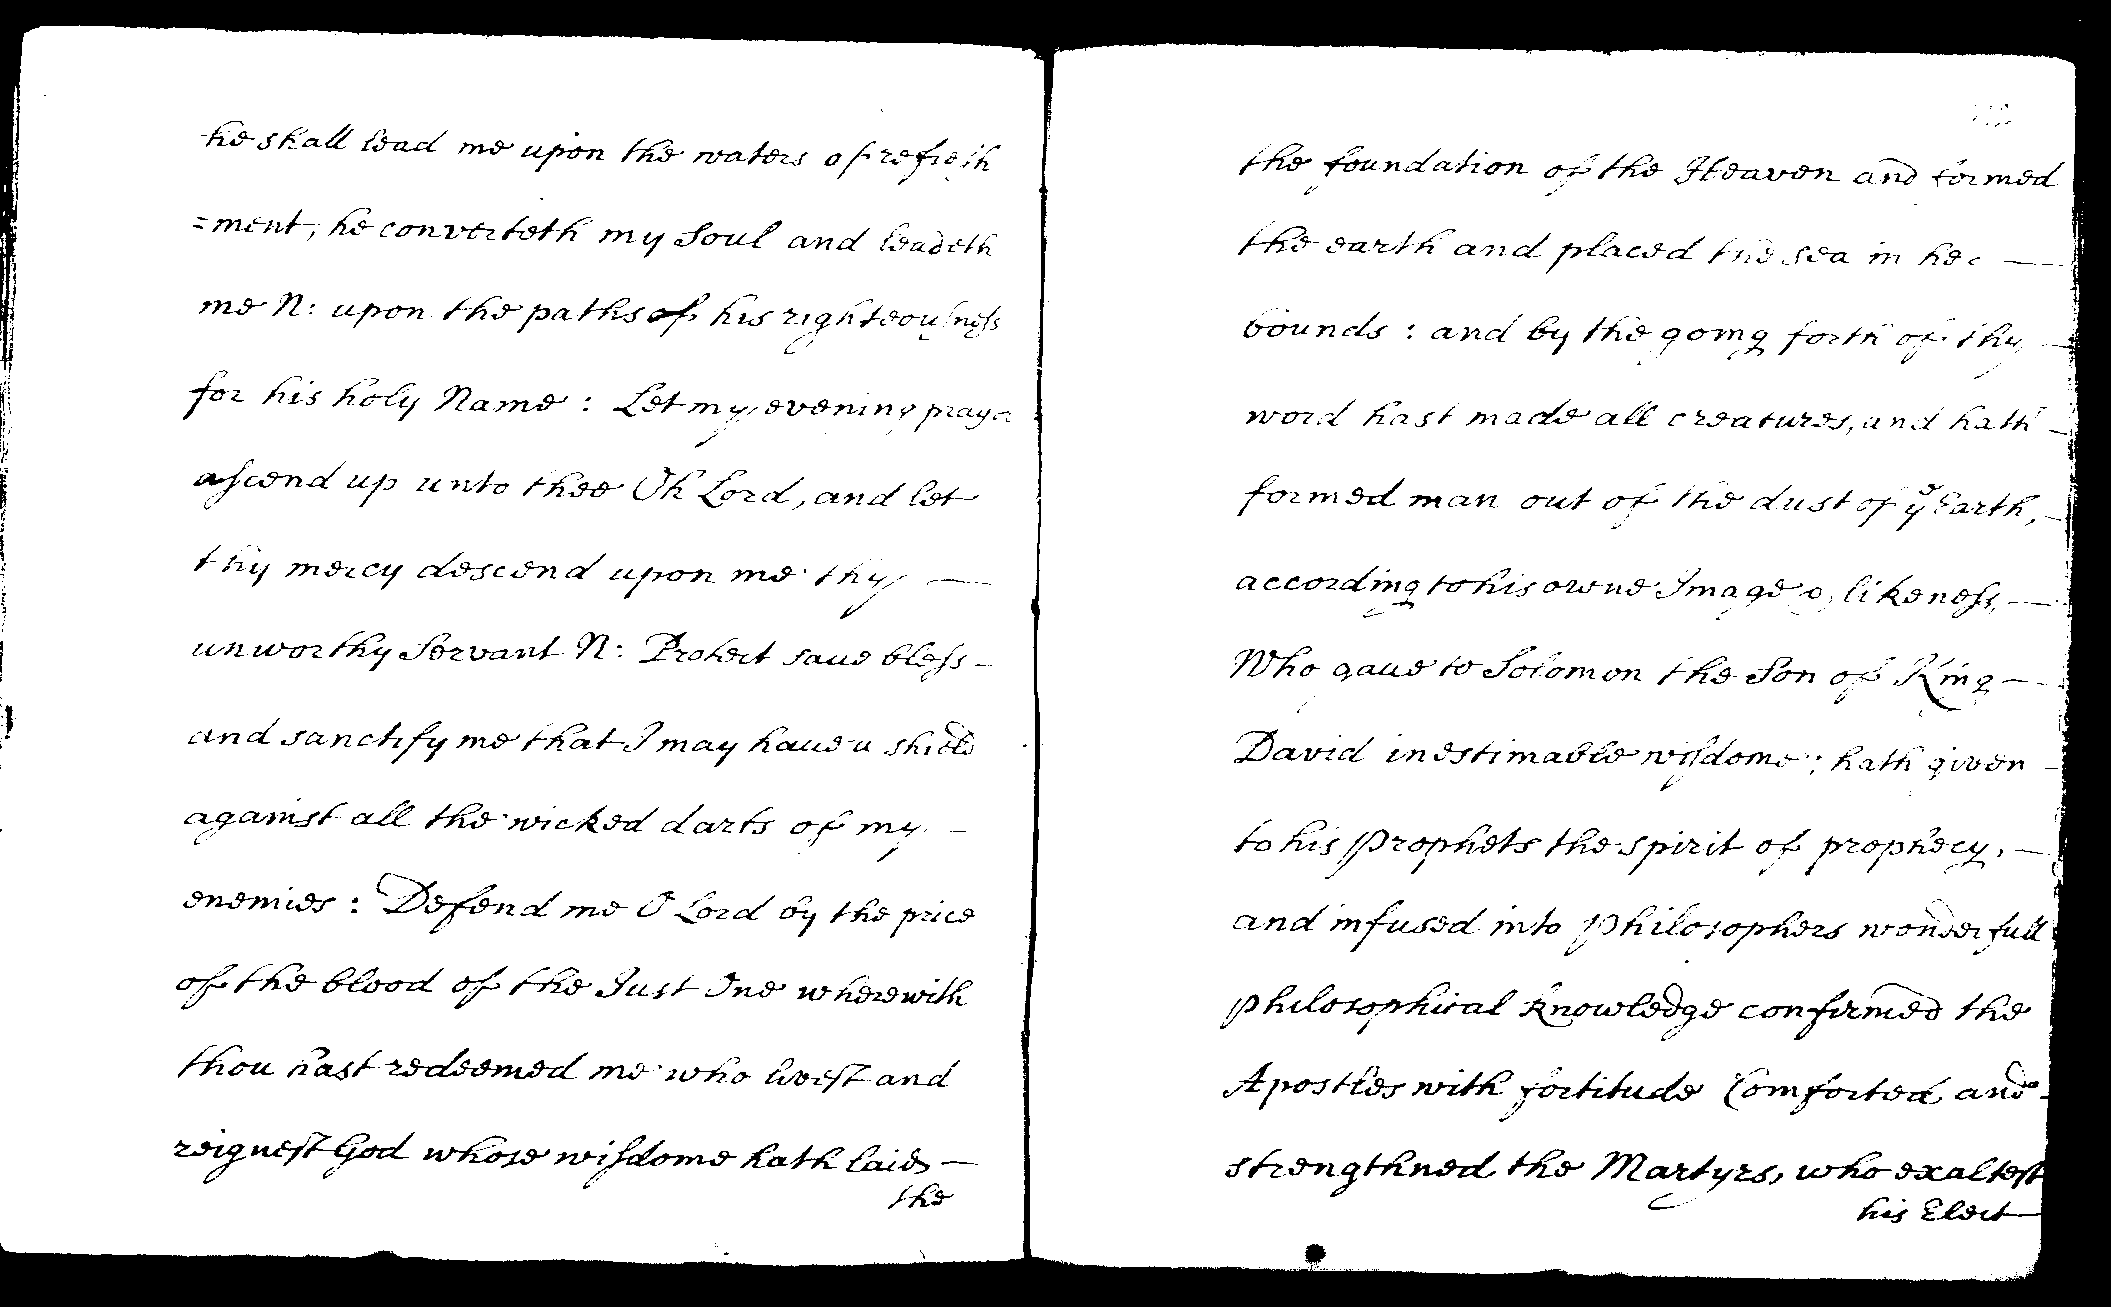 he shall lead me upon the waters of refresh
=ment, he converteth my Soul and leadeth
me N: upon the paths of his righteousness
for his holy Name: Let my evening prayer
ascend up unto thee Oh Lord, and let
thy mercy descend upon me thy —
unworthy Servant N: Protect saue bless –
and sanctify me that I may haue a shield
against all the wicked darts of my –
enemies: Defend me O Lord by the price
of the blood of the Just One wherewith
thou hast redeemed me who livest and
reignest God whose wisdome hath laid —
the
the foundation of the Heaven and formed
the earth and placed the sea in her —
bounds: and by the going forth of thy —
word hast made all creatures, and hath –
formed man out of the dust of ye Earth, –
according to his owne Image & likeness, —
Who gaue to Solomon the Son of King —
David inestimable wisdome; hath given –
to his Prophets the spirit of prophecy, —
and infused into Philosophers wonderfull
Philosophical knowledge confirmed the
Apostles with fortitude Comforted and –
strengthned the Martyrs, who exaltest
his Elect